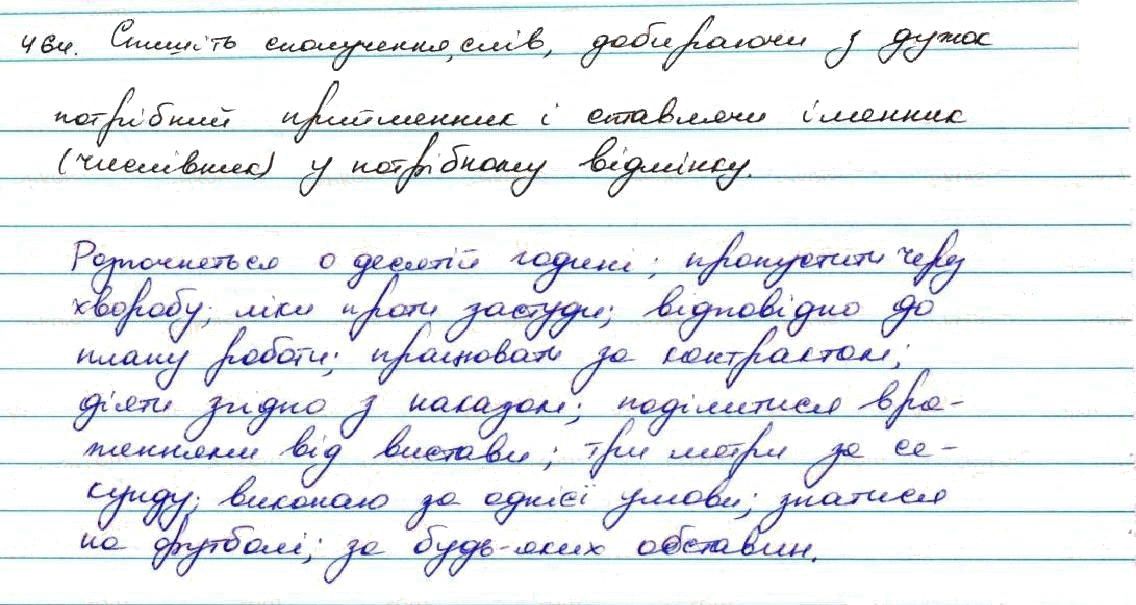 464. Спишіть сполучення слів, добираючи з дужок
потрібний прийменник і ставлячи іменник
(числівник) у потрібному відмінку.
Розпочнеться о десятій годині; пропустити через
хворобу; ліки проти застуди; відповідно до
плану роботи; працювати за контрактом;
діяти згідно з наказом; поділитися вра-
женнями від вистави; три метри за се-
кунду; виконаю за однієї умови; знатися
на футболі; за будь-яких обставин.